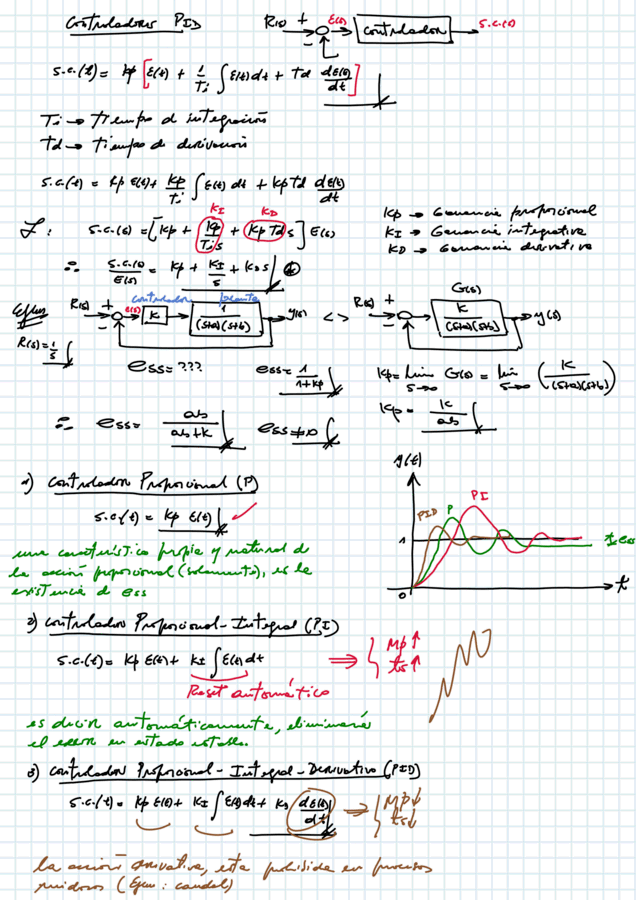 Controladores PID
R(s) + − E(s) controlador s.c.(s)
s.c.(t) = Kp [ E(t) + 1/Ti ∫ E(t) dt + Td dE(t)/dt ]
Ti → tiempo d integración
Td → tiempo de derivación
s.c.(t) = Kp E(t) + Kp/Ti ∫ E(t) dt + Kp Td dE(t)/dt
KI KD
ℒ: s.c.(s) = [ Kp + Kp/Ti s + Kp Td s ] E(s)
Kp → Ganancia proporcional
KI → Ganancia integrativa
KD → Ganancia derivativa
∴ s.c.(s)/E(s) = Kp + KI/s + KD s
Ejem R(s) + − E(s) controlador K planta 1/(s+a)(s+b) y(s) <> R(s) + − G(s) K/(s+a)(s+b) y(s)
R(s) = 1/s
ess = ??? ess = 1/1+Kp
Kp = lim s→0 G(s) = lim s→0 ( K/(s+a)(s+b) )
Kp = K/ab
∴ ess = ab/ab+K ess ≠ 0
1) Controlador Proporcional (P)
s.c.(t) = Kp E(t)
una característica propia y natural de
la acción proporcional (solamente), es la
existencia d ess
y(t)
PID P PI
1
ess
0 t
2) Controlador Proporcional-Integral (PI)
s.c.(t) = Kp E(t) + KI ∫ E(t) dt ⇒ { Mp↑ ts↑
Reset automático
es decir automáticamente, eliminará
el error en estado estable.
3) Controlador Proporcional-Integral-Derivativo (PID)
s.c.(t) = Kp E(t) + KI ∫ E(t) dt + KD dE(t)/dt ⇒ { Mp↓ ts↓
la acción derivativa, esta prohibida en procesos
ruidosos (Ejem: caudal)